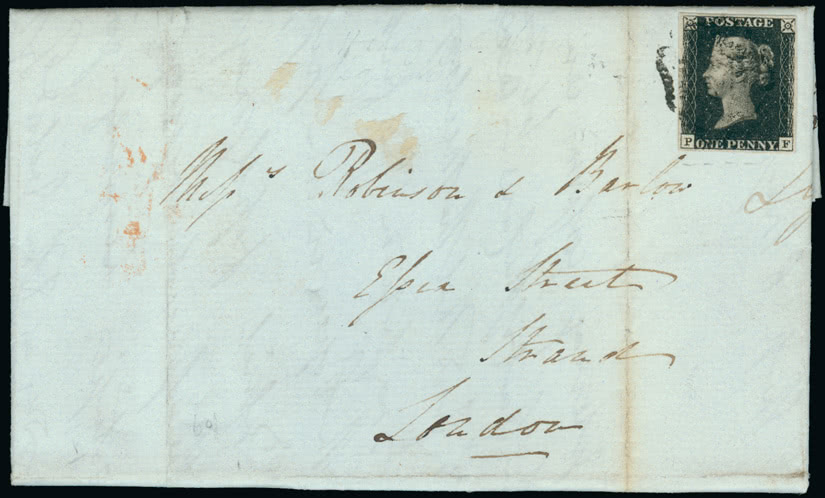 POSTAGE
P ONE PENNY F
Mess^rs Robinson & Barlow
Essex Street
Strand
London